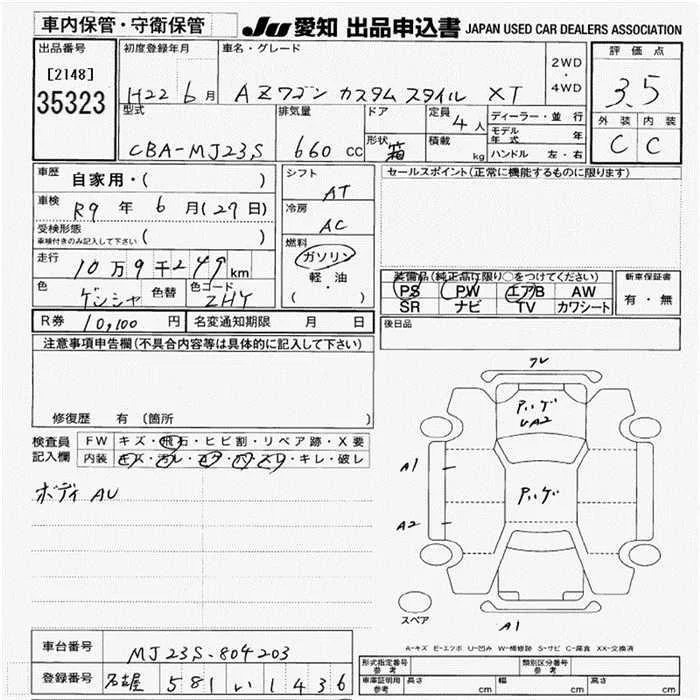 車内保管・守衛保管
JU 愛知 出品申込書 JAPAN USED CAR DEALERS ASSOCIATION
出品番号 初度登録年月 車名・グレード 2WD・4WD 評価点
[2148]
35323
H22 6月 AZワゴン カスタムスタイル XT
3.5
型式 排気量 ドア 定員 4人 ディーラー・並行 外装 内装
CBA-MJ23S 660cc 形状 箱 積載 kg モデル年式 年
ハンドル 左・右
C C
車歴 自家用・( )
シフト AT
セールスポイント(正常に機能するものに限ります)
車検 R9年 6月(27日)
冷房 AC
受検形態
車検付きのみ記入して下さい ( )
燃料 ガソリン
軽・油
( )
走行 10万9千249km
装備品(純正品に限り○をつけてください) 新車保証書
色 ゲンシャ 色替 色コード ZHY
PS PW エアB AW 有・無
SR ナビ TV カワシート
R券 10,100円 名変通知期限 月 日
後日品
注意事項申告欄(不具合内容等は具体的に記入して下さい)
修復歴 有 (箇所 )
検査員記入欄
FW キズ・飛石・ヒビ割・リペア跡・X要
内装
キレ・破レ
ボディ AU
アハゲ
UA2
A1
アハゲ
A2
スペア
A1
A-キズ E-エクボ U-凹み W-補修跡 S-サビ C-腐食 XX-交換済
車台番号 MJ23S-804203
登録番号 名古屋 581 い 1436
形式指定番号 参考 類別区分番号 参考
車庫証明用 参考 長さ cm 幅 cm 高さ cm